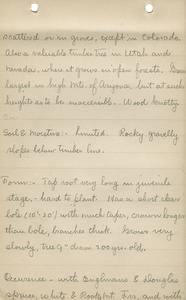 scattered or in groves, except in Colorado
Also a valuable timber tree in Utah and
Nevada, where it grows in open forests. Grows
largest in high Mts. of Arizona, but at such
heights as to be inaccessible. Wood knotty
Soil & moisture:- limited. Rocky gravelly
slopes below timber line.
Form:- Tap root very long in juvenile
stage, - hard to plant. Has a short clear
bole (10'-20') with much taper, crown longer
than bole, branches thick. Grows very
slowly, tree 9" diam 200 yrs. old.
Occurence - with Englmans & Douglas
spruce, white & Fir, and with